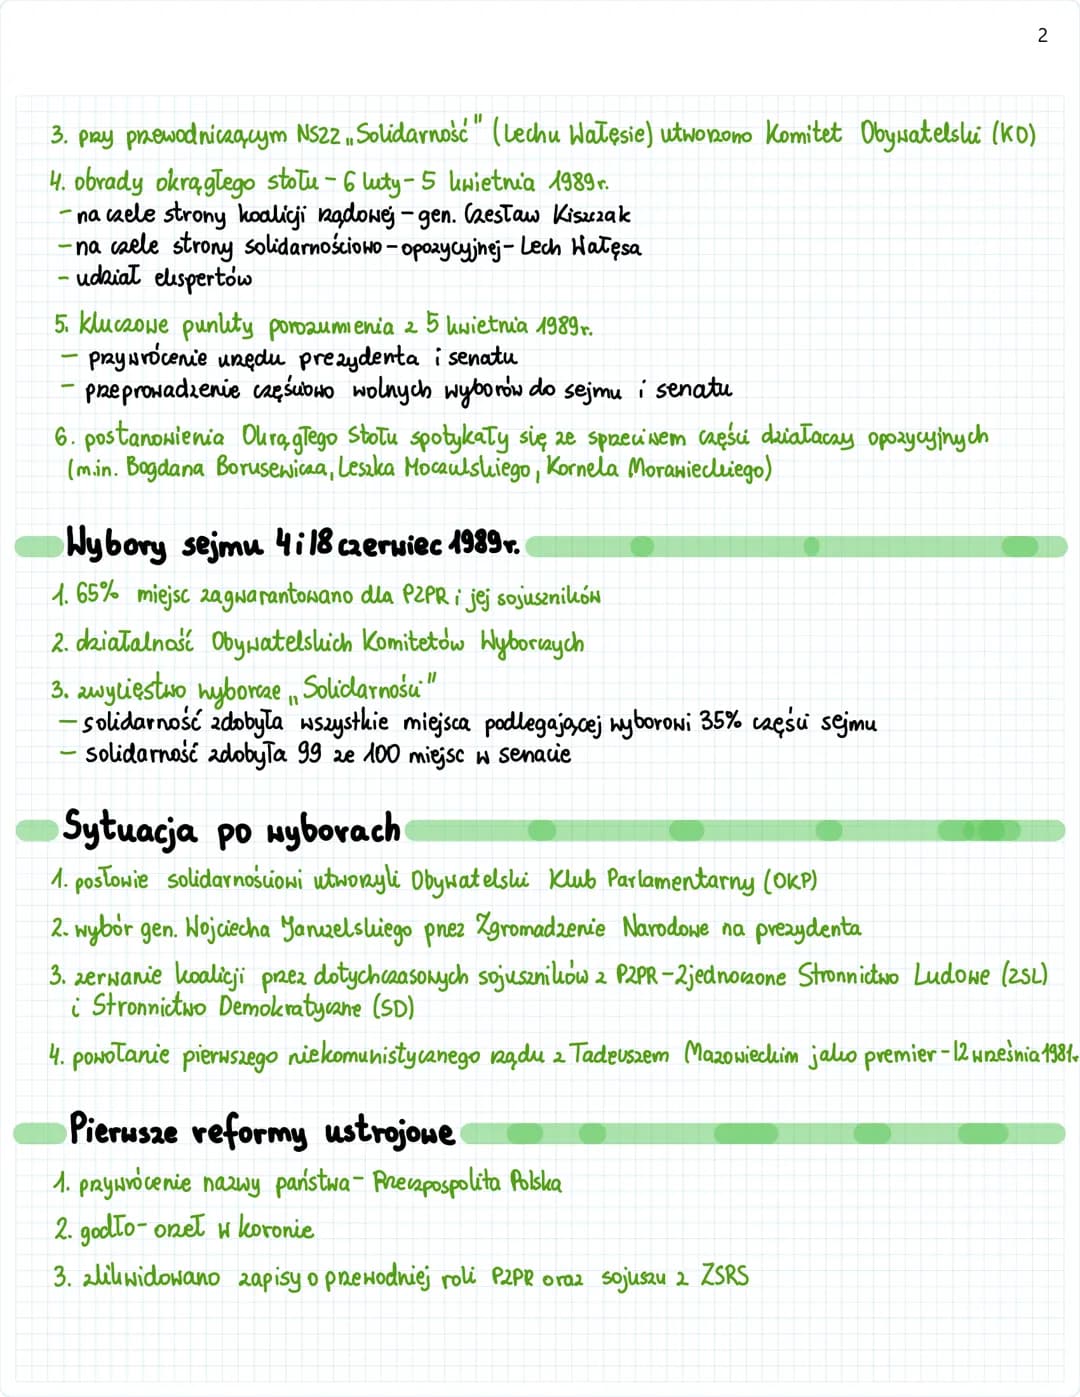 2
3. przy przewodniczącym NSZZ „Solidarność" (Lechu Wałęsie) utworzono Komitet Obywatelski (KO)
4. obrady okrągłego stołu - 6 luty - 5 kwietnia 1989r.
- na czele strony koalicji rządowej - gen. Czesław Kiszczak
- na czele strony solidarnościowo - opozycyjnej - Lech Wałęsa
- udział ekspertów
5. kluczowe punkty porozumienia z 5 kwietnia 1989r.
- przywrócenie urzędu prezydenta i senatu
- przeprowadzenie częściowo wolnych wyborów do sejmu i senatu
6. postanowienia Okrągłego Stołu spotykały się ze sprzeciwem części działaczy opozycyjnych
(m.in. Bogdana Borusewicza, Leszka Moczulskiego, Kornela Morawieckiego)
Wybory sejmu 4 i 18 czerwiec 1989r.
1. 65% miejsc zagwarantowano dla PZPR i jej sojuszników
2. działalność Obywatelskich Komitetów Wyborczych
3. zwycięstwo wyborcze „Solidarności"
- solidarność zdobyła wszystkie miejsca podlegającej wyborowi 35% części sejmu
- solidarność zdobyła 99 ze 100 miejsc w senacie
Sytuacja po wyborach
1. posłowie solidarnościowi utworzyli Obywatelski Klub Parlamentarny (OKP)
2. wybór gen. Wojciecha Jaruzelskiego przez Zgromadzenie Narodowe na prezydenta
3. zerwanie koalicji przez dotychczasowych sojuszników z PZPR - Zjednoczone Stronnictwo Ludowe (ZSL)
i Stronnictwo Demokratyczne (SD)
4. powołanie pierwszego niekomunistycznego rządu z Tadeuszem Mazowieckim jako premier - 12 września 1981r.
Pierwsze reformy ustrojowe
1. przywrócenie nazwy państwa - Rzeczpospolita Polska
2. godło - orzeł w koronie
3. zlikwidowano zapisy o przewodniej roli PZPR oraz sojuszu z ZSRS